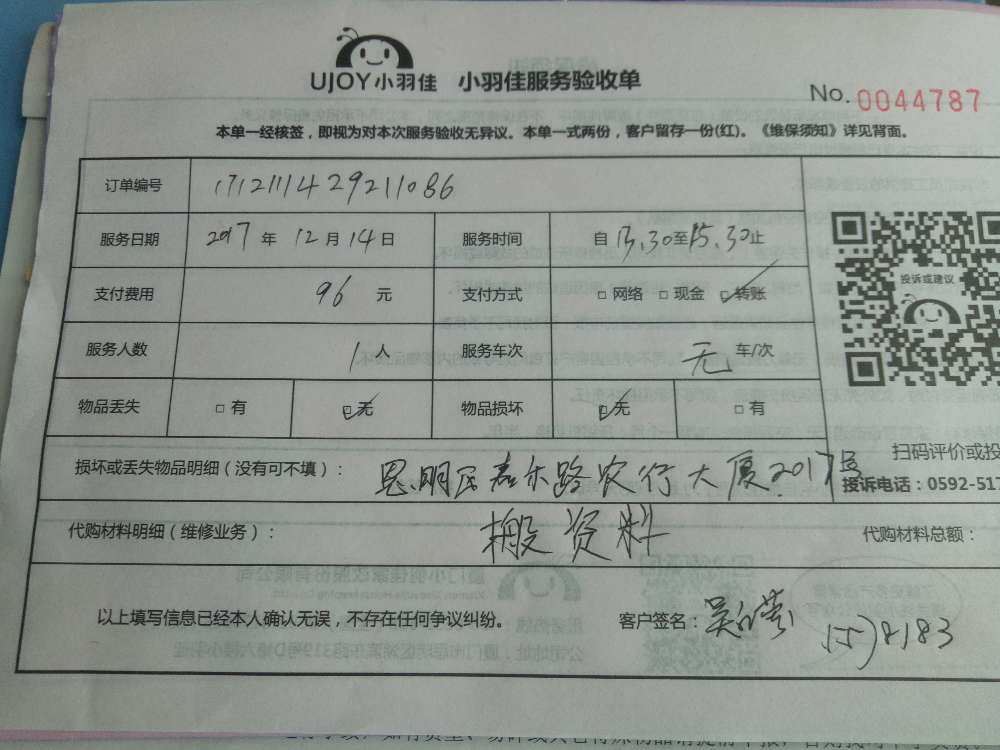 UJOY小羽佳 小羽佳服务验收单
No. 0044787
本单一经核签，即视为对本次服务验收无异议。本单一式两份，客户留存一份(红)。《维保须知》详见背面。
订单编号 171211429211086
服务日期 2017 年 12 月 14 日 服务时间 自 13.30 至 15.30 止
投诉或建议
支付费用 96 元 支付方式 □ 网络 □ 现金 ☑ 转账
服务人数 1 人 服务车次 无 车/次
物品丢失 □ 有 ☑ 无 物品损坏 ☑ 无 □ 有
扫码评价或投
损坏或丢失物品明细（没有可不填）： 思明区嘉禾路农行大厦2017号
投诉电话：0592-517
代购材料明细（维修业务）： 搬资料 代购材料总额：
以上填写信息已经本人确认无误，不存在任何争议纠纷。 客户签名： 吴